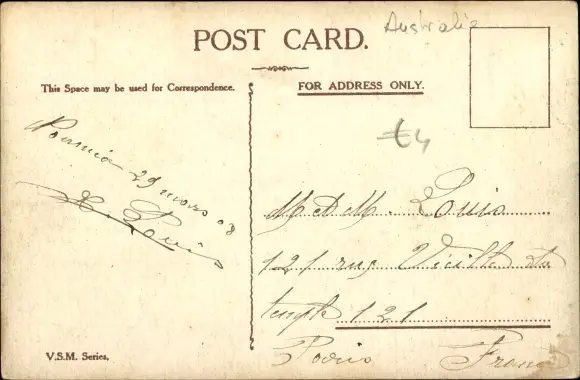 Australie
POST CARD.
This Space may be used for Correspondence.
FOR ADDRESS ONLY.
£4
29 mars 08
Louis
M et M. Louis
121 rue Vieille du
temple 121
Paris France
V.S.M. Series.